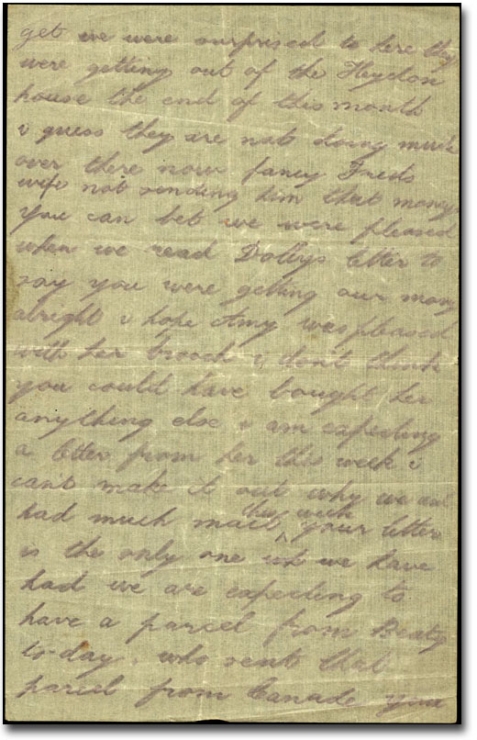 get we were surprised to here they
were getting out of the Heydon
house the end of this month
i guess they are not doing much
over there now fancy Freds
wife not sending him that money
you can bet we were pleased
when we read Dollys letter to
say you were getting our mony
alright i hope Amy was pleased
with her brooch i dont think
you could have bought her
anything else i am expecting
a letter from her this week i
cant make it out why we
had much mail this week, your letter
is the only one we have
had we are expecting to
have a parcel from Beaty
to-day, who sent that
parcel from Canada you